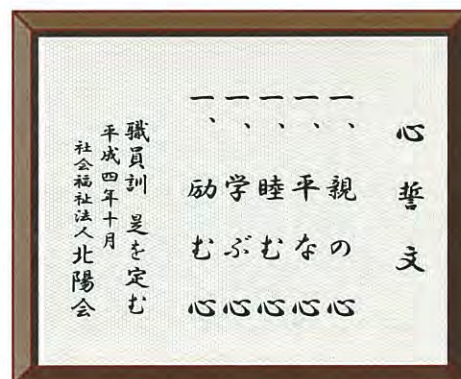 心誓文
一、親の心
一、平な心
一、睦む心
一、学ぶ心
一、励む心
職員訓 是を定む
平成四年十月
社会福祉法人北陽会